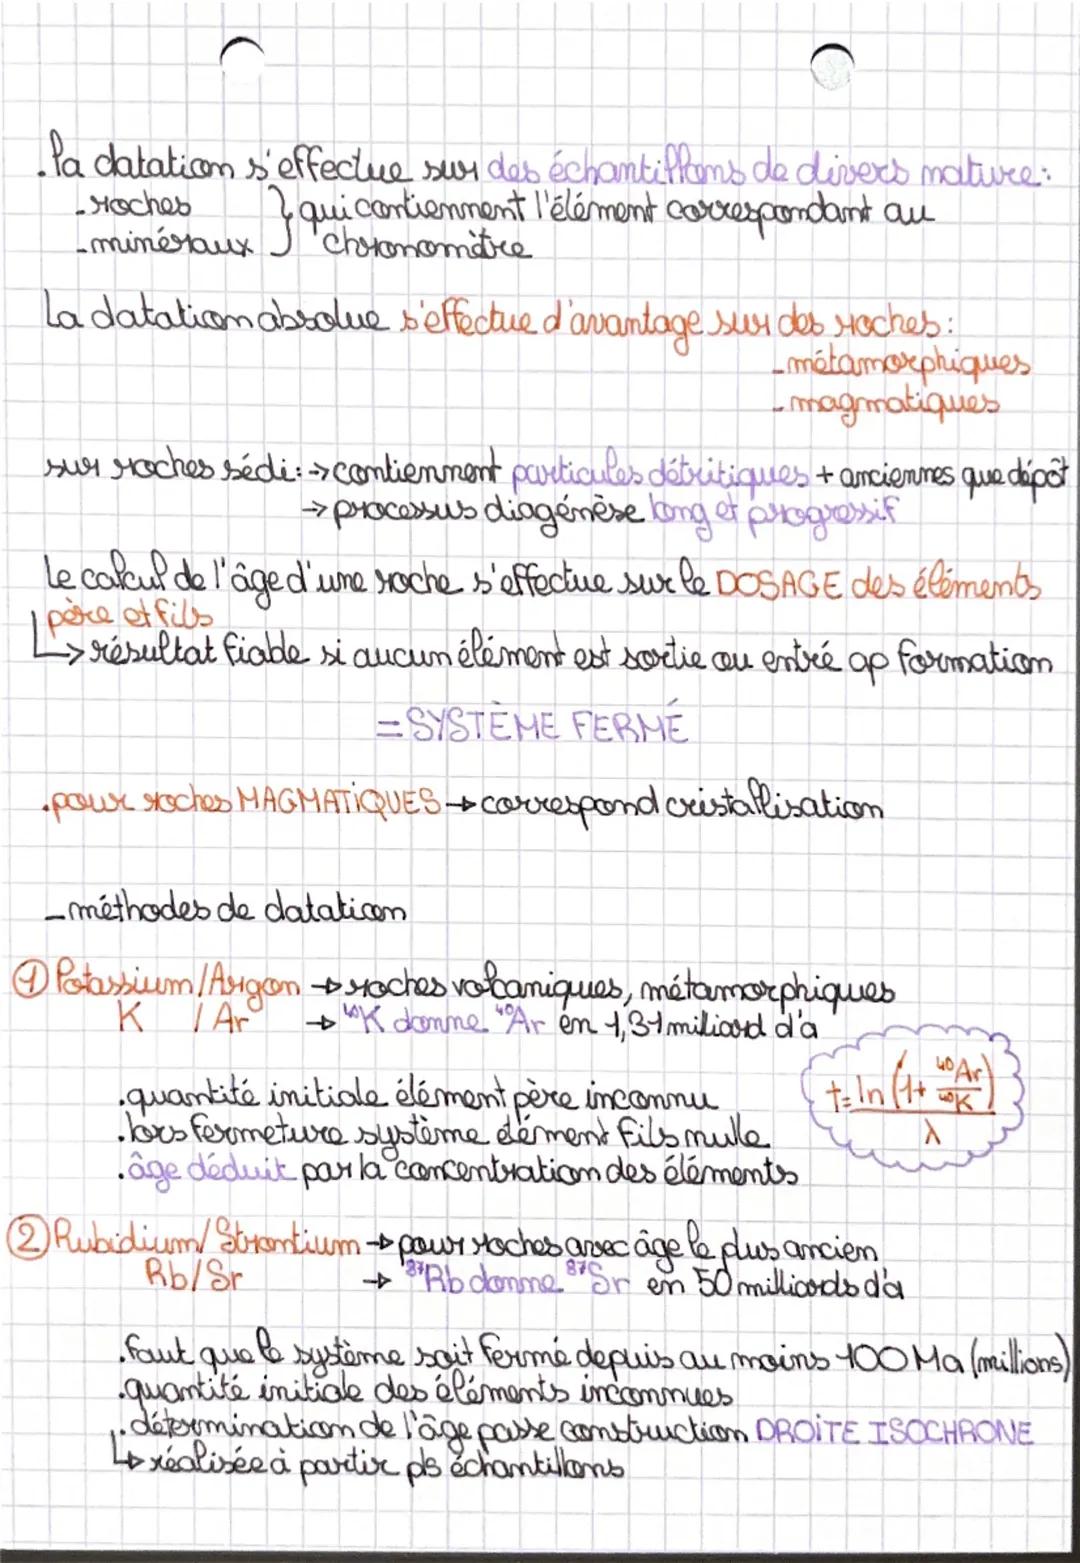 .la datation s'effectue sur des échantillons de divers nature:
-roches } qui contiennent l'élément correspondant au
-minéraux } chronomètre
La datation absolue s'effectue d'avantage sur des roches:
-métamorphiques
-magmatiques
sur roches sédi: → contiennent particules détritiques + anciennes que dépôt
→ processus diagénèse long et progressif
Le calcul de l'âge d'une roche s'effectue sur le DOSAGE des éléments
père et fils
↳ résultat fiable si aucun élément est sortie ou entré ap formation
= SYSTÈME FERMÉ
.pour roches MAGMATIQUES → correspond cristallisation
-méthodes de datation
① Potassium/Argon → roches volcaniques, métamorphiques
K / Ar → ⁴⁰K donne ⁴⁰Ar en 1,31 miliard d'a
t = ln(1 + ⁴⁰Ar/⁴⁰K) / λ
.quantité initiale élément père inconnu
.lors fermeture système élément fils nulle
.âge déduit par la concentration des éléments
② Rubidium/Strontium → pour roches avec âge le plus ancien
Rb/Sr → ⁸⁷Rb donne ⁸⁷Sr en 50 milliards d'a
.faut que le système soit fermé depuis au moins 100 Ma (millions)
.quantité initiale des éléments inconnues
.détermination de l'âge passe construction DROITE ISOCHRONE
↳ réalisée à partir pls échantillons